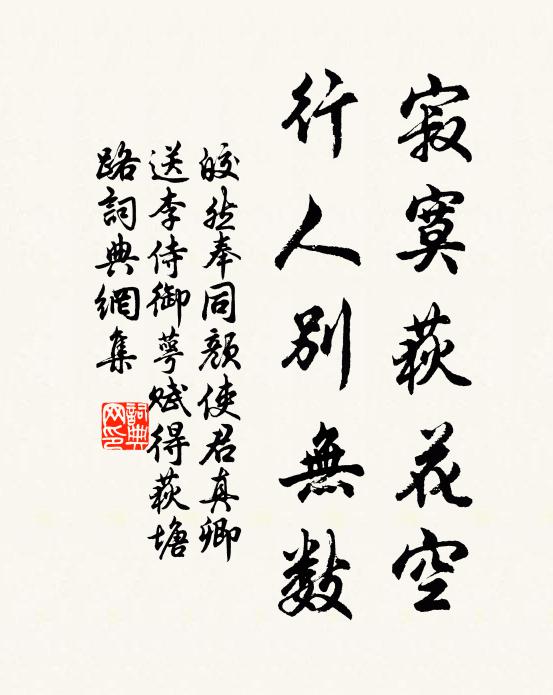 寂寞荻花空
行人別無數
皎然奉同顏使君真卿
送李侍御萼賦得荻塘
路詞典網集
詞典
网印